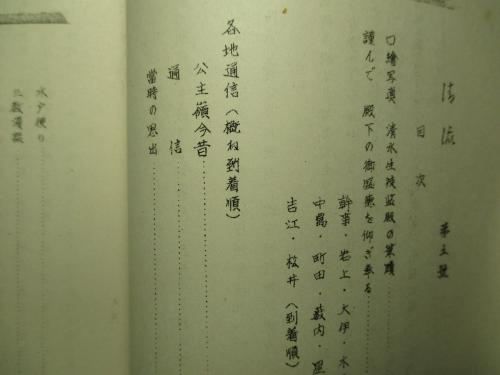 清流 第五號
目次
口繪写真 清水生徒監殿の筆蹟
謹んで 殿下の御臨
を仰ぎ奉る
幹事・岩上・大伊・木
中島・町田・薮内・星
吉江・桜井（到着順）
各地通信（概ね到着順）
公主嶺今昔
通信
當時の思出
水戸便り